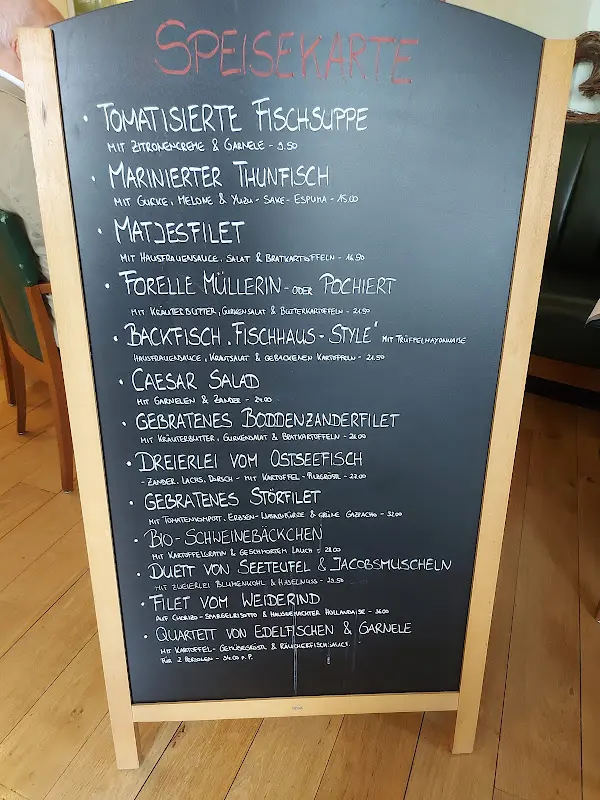 SPEISEKARTE
• TOMATISIERTE FISCHSUPPE
MIT ZITRONENCREME & GARNELE - 9.50
• MARINIERTER THUNFISCH
MIT GURKE, MELONE & YUZU - SAKE - ESPUMA - 15.00
• MATJESFILET
MIT HAUSFRAUENSAUCE, SALAT & BRATKARTOFFELN - 16.50
• FORELLE MÜLLERIN - ODER POCHIERT
MIT KRÄUTERBUTTER, GURKENSALAT & BUTTERKARTOFFELN - 21.50
• BACKFISCH „FISCHHAUS - STYLE" MIT TRÜFFELMAYONNAISE
HAUSFRAUENSAUCE, KRAUTSALAT & GEBACKENEN KARTOFFELN - 21.50
• CAESAR SALAD
MIT GARNELEN & ZANDER - 24.00
• GEBRATENES BODDENZANDERFILET
MIT KRÄUTERBUTTER, GURKENSALAT & BRATKARTOFFELN - 26.00
• DREIERLEI VOM OSTSEEFISCH
- ZANDER, LACHS, DORSCH - MIT KARTOFFEL - PILZGRÖSTL - 27.00
• GEBRATENES STÖRFILET
MIT TOMATENKOMPOTT, ERBSEN - & GRÜNE GAZPACHO - 32.00
• BIO - SCHWEINEBÄCKCHEN
MIT KARTOFFELGRATIN & GESCHMORTEM LAUCH - 28.00
• DUETT VON SEETEUFEL & JACOBSMUSCHELN
MIT ZWEIERLEI BLUMENKOHL & HASELNUSS -
• FILET VOM WEIDERIND
AUF CHORIZO - SPARGELRISOTTO & HAUSGEMACHTER HOLLANDAISE - 36.00
• QUARTETT VON EDELFISCHEN & GARNELE
MIT KARTOFFEL - GEMÜSERÖSTI & RÄUCHERFISCHSAUCE
FÜR 2 PERSONEN - 34.00 P.P.